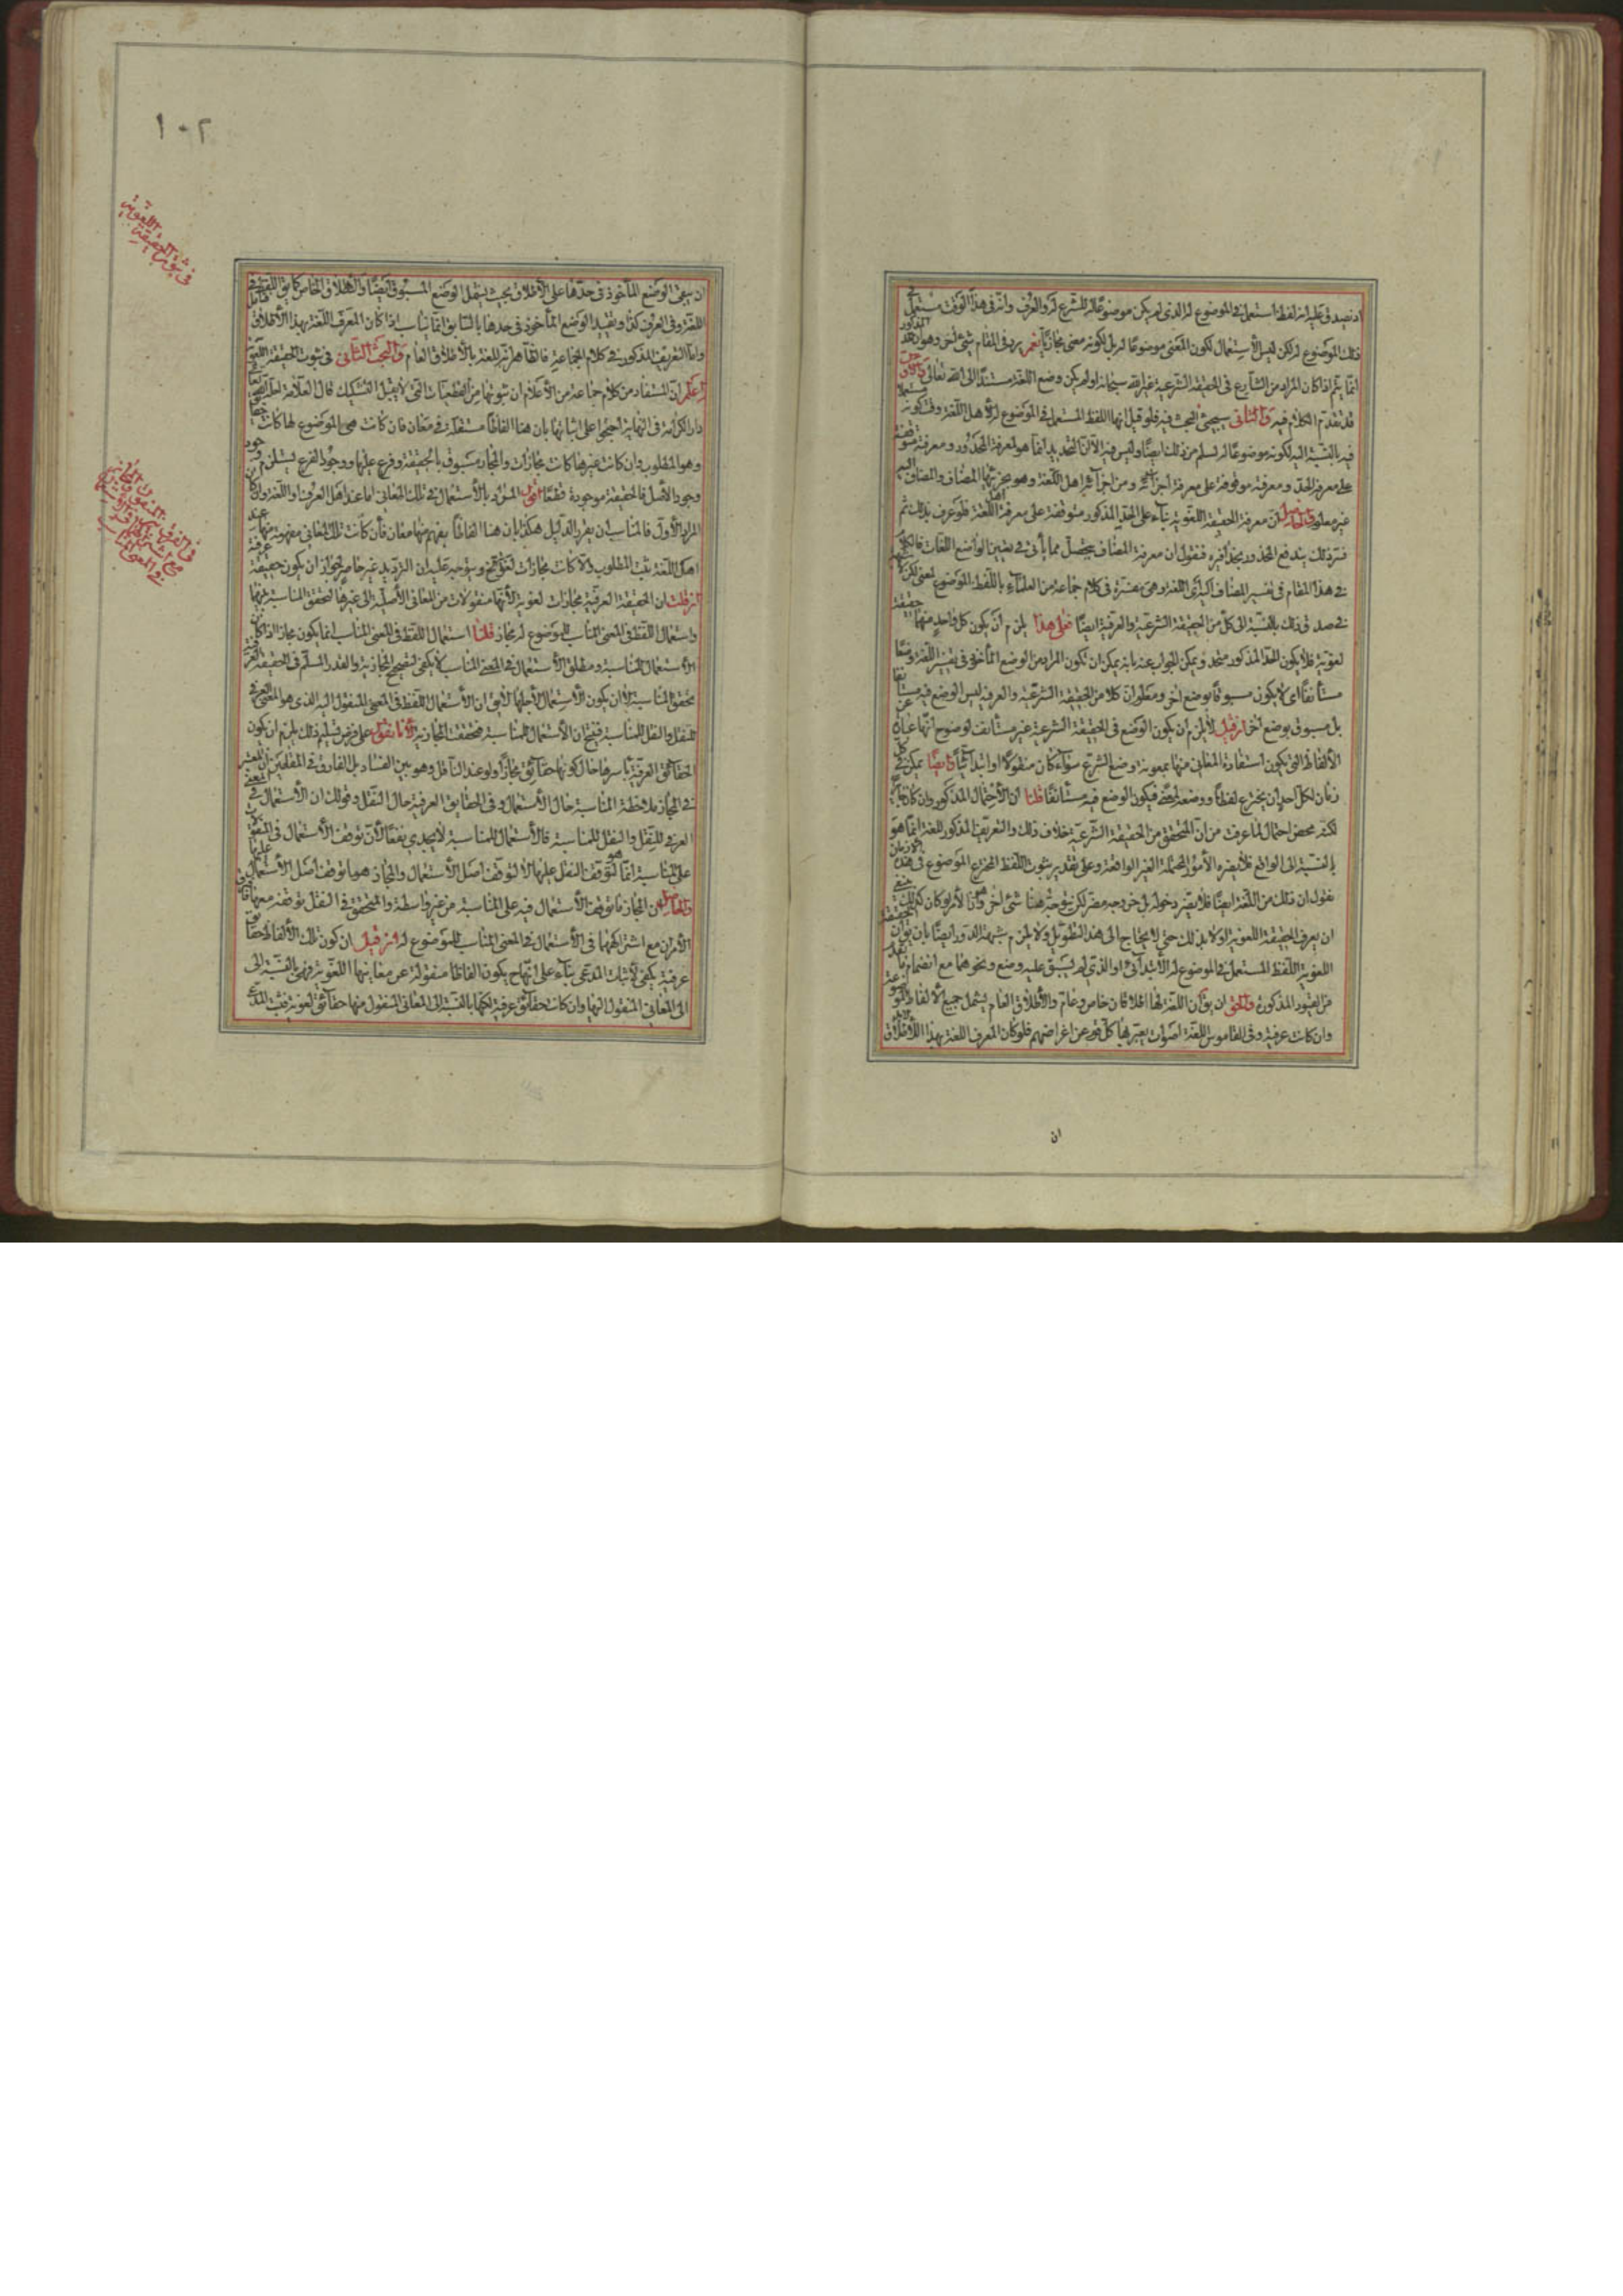 اذ يصدق عليه انه لفظ استعمل في الموضوع له الذي لم يكن موضوعًا له للشرع له والعرف وانه في هذا الوقت مستعمل في
ذلك الموضوع له لكن ليس الاستعمال لكون المعنى موضوعًا له بل لكونه معنى مجازيًّا نعم يرد في المقام شئ اخر وهو ان هذا المذكور
انما يتم اذا كان المراد من الشارع في الحقيقة الشرعية غير الله سبحانه اولم يكن وضع اللغة مستندًا الى الله تعالى
قد تقدم الكلام فيه والثاني سيجئ البحث فيه فلو قيل انها اللفظ المستعمل في الموضوع له لاهل اللغة وقت كونه مستعملا
فيه بالنسبة اليه لكونه موضوعًا له لسلم من ذلك ايضًا وليس فيه الا ان التحديد انما هو لمعرفة المحدود ومعرفته متوقفة
على معرفة الحد ومعرفته موقوفة على معرفة اجزائه ومن اجزائه اهل اللغة وهو بجزئيها المضاف والمضاف اليه
غير معلوم والحاصل ان معرفة الحقيقة اللغوية بناء على الحد المذكور متوقفة على معرفة اهل اللغة فلو عرف بذلك ثم
فسر ذلك يندفع المحذور بحذافيره فنقول ان معرفة المضاف يتحصل مما يأتي في تعيين الواضع اللغات فالكلام
في هذا المقام في تفسير المضاف اليه اي اللغة وهي مفسرة في كلام جماعة من العلماء باللفظ الموضوع لمعنى
في صدق ذلك بالنسبة الى كل من الحقيقة الشرعية والعرفية ايضًا فعلى هذا يلزم ان يكون كل واحد منهما حقيقة
لغوية فلا يكون الحد المذكور متحد ويمكن الجواب عنه بانه يمكن ان تكون المراد من الوضع المأخوذ في تفسير اللغة وضعًا
مستأنفًا اي لا يكون مسبوقًا بوضع اخر ومعلوم ان كلا من الحقيقة الشرعية والعرفية ليس الوضع فيه مستأنفًا
بل مسبوق بوضع اخر ان قيل لا يلزم ان يكون الوضع في الحقيقة الشرعية غير مستأنف لوضوح انها عبارة عن
الالفاظ التي يكون استفادة المعاني منها بمعونة وضع الشرع سواء كان منقولًا او ابتدائيًّا وايضًا يمكن في كل
زمان لكل احد ان يخترع لفظًا ووضعه لمعنى فيكون الوضع فيه مستأنفًا قلنا ان الاحتمال المذكور وان كان
لكنه محض احتمال لما عرفت من ان المتحقق من الحقيقة الشرعية خلاف ذلك والتعريف المذكور للغة انما هو
بالنسبة الى الواقع فلا يضره الامور المحتملة الغير الواقعة وعلى تقدير ثبوت اللفظ المخترع الموضوع في هذه الازمان
نقول ان ذلك من اللغة ايضًا فلا يضر دخوله بل خروجه مضر لكن يتوجه هنا شئ اخر وهو اذا الامر لو كان كذلك
ان يعرف الحقيقة اللغوية اولا بذلك حتى لا يحتاج الى هذه التطويل ولا يلزم شبهة الدور ايضًا بان يق ان الحقيقة
اللغوية اللفظ المستعمل في الموضوع له الابتدائي او الذي لم يسبق عليه وضع ونحوهما مع انضمام
من القيود المذكورة والحق ان يق ان اللغة لها اطلاقان خاص وعام والاطلاق العام يشمل جميع الالفاظ الموضوعة
وان كانت عرفية وفي القاموس اللغة اصوات يعبر بها كل قوم عن اغراضهم فلو كان المعرف اللغة بهذا الاطلاق
ان
١٠٢
في ثبوت الحقيقة اللغوية
ان يبقى الوضع المأخوذ في حدها على الاطلاق بحيث يشمل الوضع المسبوق ايضًا والاطلاق الخاص كما يق اللفظ في
اللغة وفي العرف كذا وتقييد الوضع المأخوذ في حدها بالسابق انما يناسب اذا كان المعرف اللغة بهذا الاطلاق
واما التعريف المذكور في كلام الجماعة فالظاهر انه للغة بالاطلاق العام والبحث الثاني في ثبوت الحقيقة اللغوية
اعلم ان المستفاد من كلام جماعة من الاعلام ان ثبوتها من القطعيات التي لا يقبل التشكيك قال العلامة احله الله تعالى
دار الكرامة في النهاية احتجوا على اثباتها بان هنا الفاظًا مستعملة في معان فان كانت هي الموضوع لها كانت حقايق
وهو المطلوب وان كانت غيرها كانت مجازات والمجاز مسبوق بالحقيقة وفرع عليها ووجود الفرع يستلزم وجود
وجود الاصل فالحقيقة موجودة قطعًا انتهى المراد بالاستعمال في تلك المعاني اما عند اهل العرف او اللغة وان كان
المراد الاول فالمناسب ان يقرر الدليل هكذا بان هنا الفاظًا يفهم منها معان فان كانت تلك المعاني مفهومة منها عند
اهل اللغة يثبت المطلوب والا كانت مجازات لغوية ويتوجه عليه ان الترديد غير حاصر لجواز ان يكون حقيقة عرفية
ان قلت ان الحقيقة العرفية مجازات لغوية لانها منقولات من المعاني الاصلية الى غيرها لتحقق المناسبة بينهما
واستعمال اللفظ في المعنى المناسب للموضوع له مجاز قلنا استعمال اللفظ في المعنى المناسب انما يكون مجازا اذا كان
الاستعمال للمناسبة ومطلق الاستعمال في المعنى المناسب لا يكفي لتصحيح المجازية والقدر المسلم في الحقيقة العرفية
تحقق المناسبة لا ان يكون الاستعمال لاجلها لا يق ان الاستعمال اللفظ في المعنى المنقول اليه الذي هو المعنى العرفي
للنقل والنقل للمناسبة فينتج ان الاستعمال للمناسبة فتحققت المجازية لانا نقول على فرض تسليم ذلك يلزم ان يكون
الحقائق العرفية باسرها حال كونها حقائق مجازًا ولو عند الناقل وهو بين الفساد بل الفارق في المقامين ان المعتبر
في المجاز ملاحظة المناسبة حال الاستعمال وفي الحقايق العرفية حال النقل وقولك ان الاستعمال في المعنى
العرفي للنقل والنقل للمناسبة فالاستعمال للمناسبة لا يجدي نفعًا لان توقف الاستعمال في المنقول
على المناسبة انما هو لتوقف النقل عليها لا لتوقف اصل الاستعمال والمجاز هو ما توقف اصل الاستعمال عليها
والحاصل ان المجاز ما توقف الاستعمال فيه على المناسبة من غير واسطة والمتحقق في النقل توقفه معها
الامران مع اشتراكهما في الاستعمال في المعنى المناسب للموضوع له ان قيل ان كون تلك الالفاظ حقايق
عرفية يكفي لاثبات المدعى بناء على انه ح يكون الفاظا منقولة عن معانيها اللغوية وهي بالنسبة الى
الى المعاني المنقول اليها وان كانت حقائق عرفية لكنها بالنسبة الى المعاني المنقول منها حقائق لغوية فيثبت المدعى